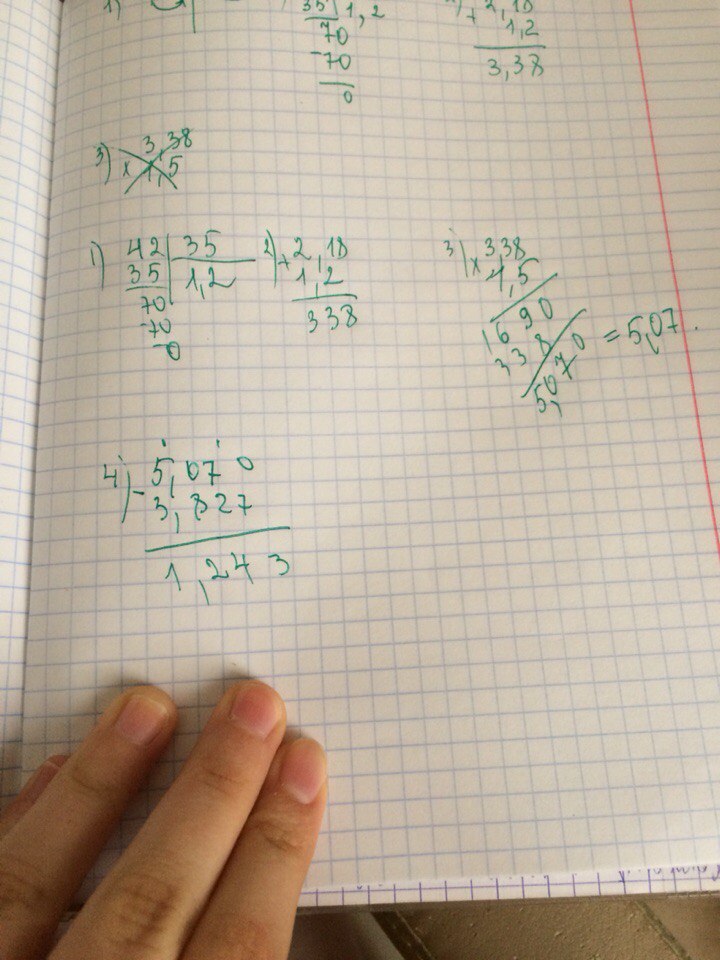 1)
35 1,2
70
-70
0
+ 2,18
1,2
3,38
3) 3,38
x 1,5
1) 42 35
35 1,2
70
-70
0
2) + 2,18
1,2
338
3) x 3,38
1,5
1690
338
5,070 = 5,07.
4) - 5,070
3,827
1,243